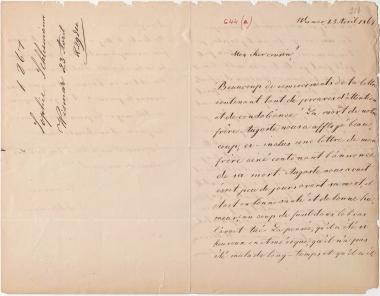 1867
Sophie Schliemann
Weimar 23 Avril
Réglée
644 (a)
Mon cher cousin!
Beaucoup de remerciments de ta lettre
contenant tant de preuves d'attention
et de condoléance! La mort de notre
frère Auguste nous a affligé beau-
coup, ci-inclus une lettre de mon
frère ainé contenant l'annonce
de sa mort. Auguste nous avait
écrit peu de jours avant sa mort, il
était en bonne santé et de bonne hu-
meur, un coup de fusil dans le bras
l'avait tué. La pensée, qu'il a été si
heureux en Amérique, qu'il n'a pas
été malade long-temps et qu'il a été